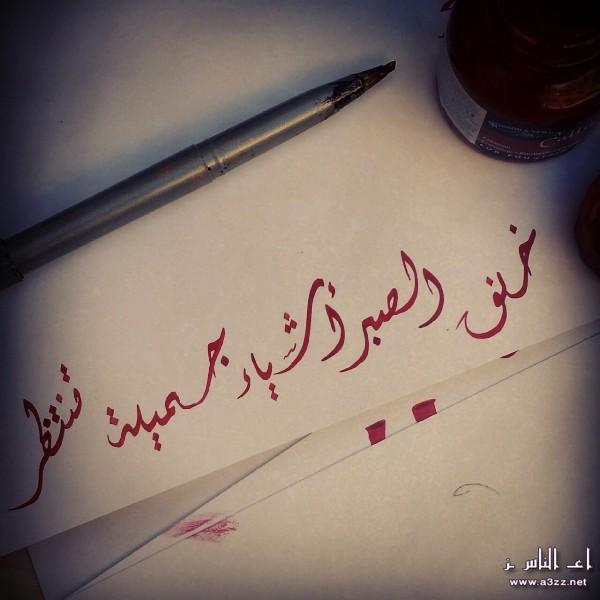 خلف الصبر أشياء جميلة تنتظر
اعز الناس
www.a3zz.net